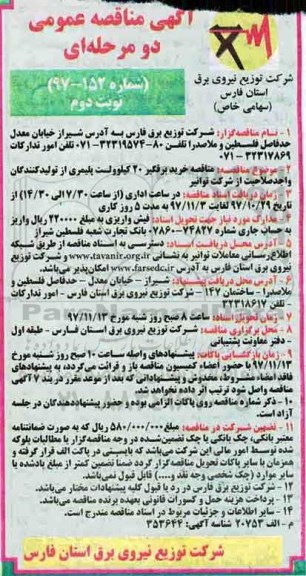 آگهی مناقصه عمومی
دو مرحله‌ای
(شماره ۱۵۲-۹۷)
نوبت دوم
شرکت توزیع نیروی برق
استان فارس
(سهامی خاص)
۱- نام مناقصه‌گزار: شرکت توزیع برق فارس به آدرس شیراز خیابان معدل
حدفاصل فلسطین و ملاصدرا تلفن ۸۰-۳۲۳۱۹۵۷۴-۰۷۱ تلفن امور تدارکات
۳۲۳۱۷۸۶۹-۰۷۱
۲- موضوع مناقصه: مناقصه خرید برقگیر ۲۰ کیلوولت پلیمری از تولیدکنندگان
واجد صلاحیت از شرکت توانیر
۳- زمان دریافت اسناد مناقصه: در ساعت اداری (از ساعت ۷/۳۰ الی ۱۴/۳۰) از
تاریخ ۹۷/۱۰/۲۹ لغایت ۹۷/۱۱/۳ به مدت ۵ روز کاری
۴- مدارک مورد نیاز جهت تحویل اسناد: فیش واریزی به مبلغ ۲۲۰۰۰۰ ریال واریز
به حساب جاری شماره ۷۴۸۲۷-۰۷۸۶۰ بانک تجارت شعبه فلسطین شیراز
۵- آدرس محل دریافت اسناد: دسترسی به اسناد مناقصه از طریق شبکه
اطلاع‌رسانی معاملات توانیر به نشانی www.tavanir.org.ir و شرکت توزیع
نیروی برق استان فارس به آدرس www.farsedc.ir امکان‌پذیر می‌باشد.
۶- آدرس محل دریافت پیشنهاد: شیراز - خیابان معدل - حدفاصل فلسطین و
ملاصدرا - ساختمان ۱۴۷ - شرکت توزیع نیروی برق استان فارس - امور تدارکات
- تلفن ۳۲۳۱۸۶۱۷
۷- زمان تحویل اسناد: ساعت ۸ صبح روز شنبه مورخ ۹۷/۱۱/۱۳
۸- محل برگزاری مناقصه: شرکت توزیع نیروی برق استان فارس - طبقه اول
- دفتر معاونت پشتیبانی
۹- زمان بازگشایی پاکات: پیشنهادهای واصله ساعت ۱۰ صبح روز شنبه مورخ
۹۷/۱۱/۱۳ با حضور اعضاء کمیسیون مناقصه باز و قرائت می‌گردد، به پیشنهادهای
فاقد امضاء، مشروط، مخدوش و پیشنهاداتی که بعد از موعد مقرر در بند ۷ آگهی
مناقصه واصل شود ترتیب اثر داده نخواهد شد.
۱۰- ذکر شماره مناقصه روی پاکات الزامی بوده و حضور پیشنهاددهندگان در جلسه
آزاد است.
۱۱- تضمین شرکت در مناقصه: مبلغ ۵۸۰/۰۰۰/۰۰۰ ریال که به صورت ضمانتنامه
معتبر بانکی، چک بانکی یا چک تضمین‌شده در وجه مناقصه‌گزار یا مطالبات بلوکه
شده توسط امور مالی این شرکت می‌باشد که بایستی در پاکت الف قرار گرفته و
همزمان با سایر پاکات تحویل مناقصه‌گزار گردد ضمنا تضمین کمتر از مبلغ یادشده یا
سایر موارد (چک شخصی، وجه نقد و....) قابل قبول نمی‌باشد.
۱۲- شرکت توزیع برق فارس در رد یا قبول کلیه پیشنهادات مختار می‌باشد.
۱۳- پرداخت هزینه حمل و کسورات قانونی بعهده برنده مناقصه می‌باشد.
۱۴- سایر اطلاعات و جزئیات مربوط در اسناد مناقصه مندرج است.
م - الف ۲۰۷۵۳ شناسه آگهی: ۳۵۳۶۴۴
شرکت توزیع نیروی برق استان فارس